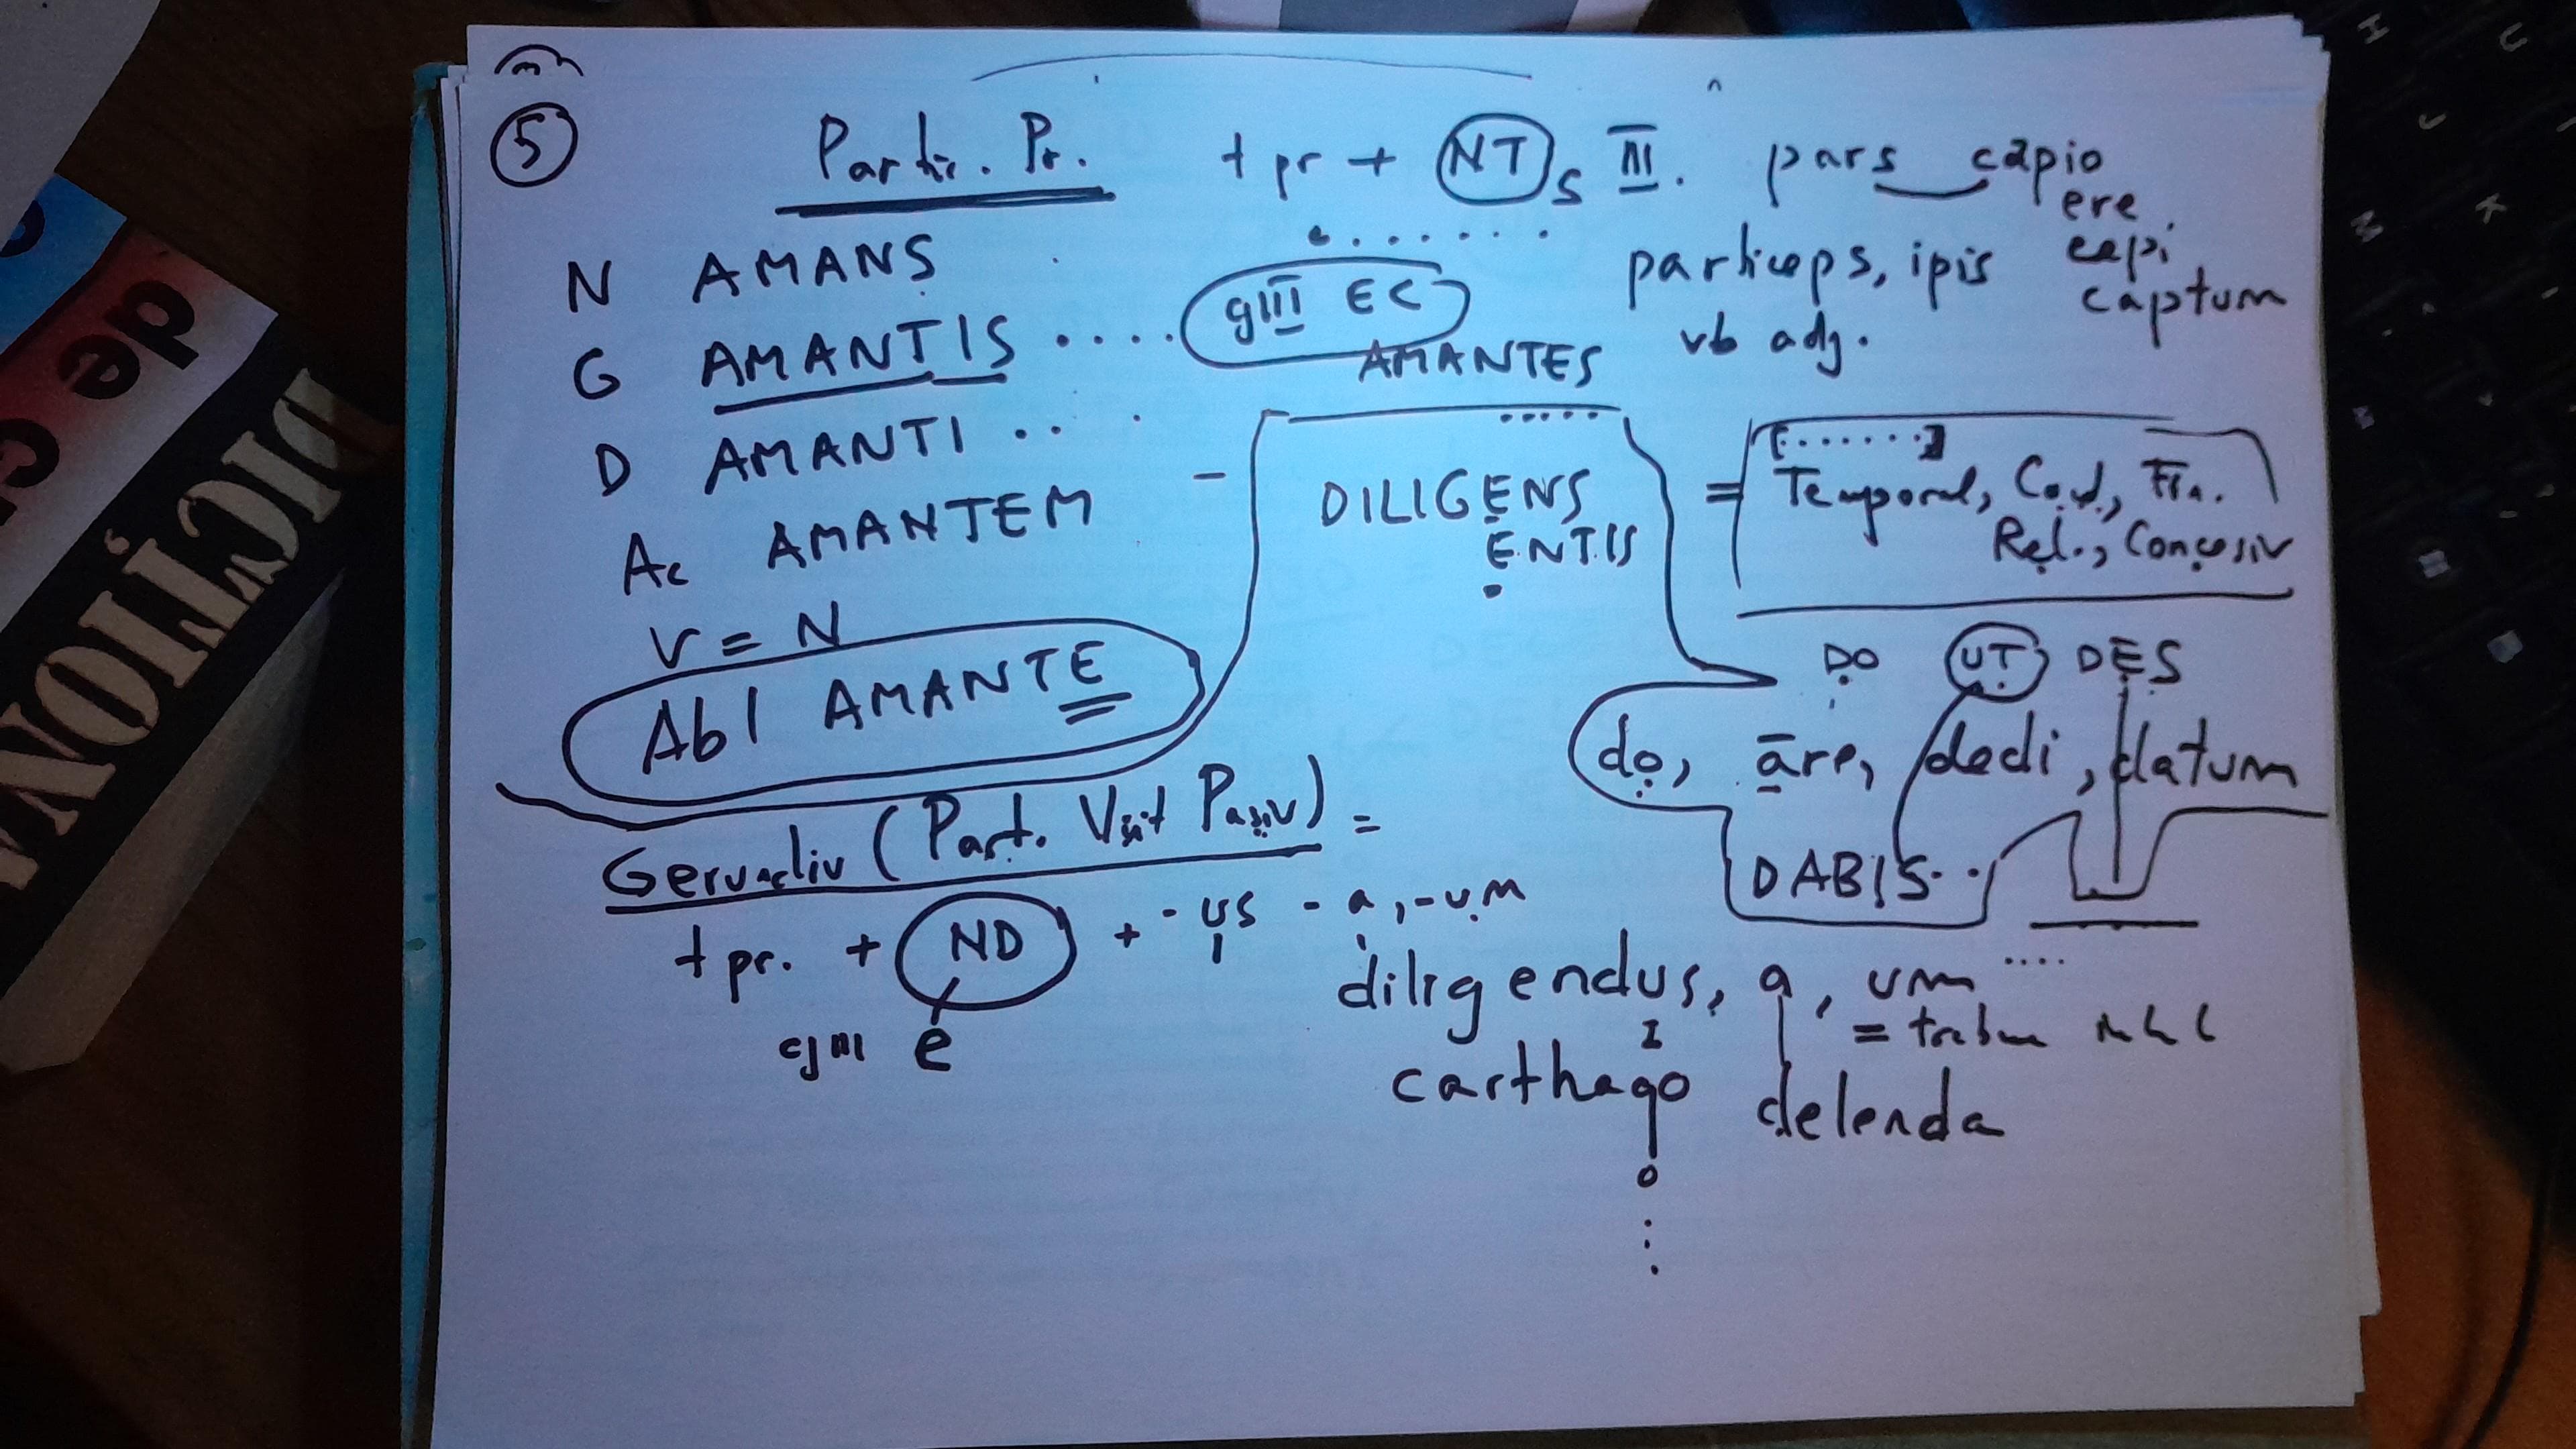 5
Partic. Pr. t pr + NT s III. pars capio
ere
N AMANS particeps, ipis cepi
captum
G AMANTIS .... gIII EC vb adj.
AMANTES
D AMANTI ..
Ac AMANTEM - DILIGENS = Temporal, Fin.
ENTIS Rel., Concesiv
V = N
Abl AMANTE DO UT DES
do, āre, dedi, datum
Gerundiv (Part. Viit Pasiv) = DABIS..
t pr. + ND + -us -a, -um
diligendus, a, um ....
cj III e =
carthago delenda
o
DICȚIONA
de